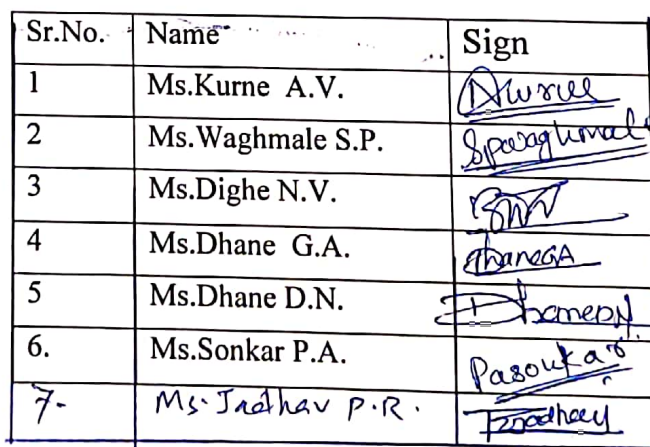 Sr.No. Name Sign
1 Ms.Kurne A.V.
2 Ms.Waghmale S.P. Spwaghmale
3 Ms.Dighe N.V.
4 Ms.Dhane G.A. DhaneGA
5 Ms.Dhane D.N. DhaneDN.
6. Ms.Sonkar P.A. Pasonkar
7- Ms. Jadhav P.R.